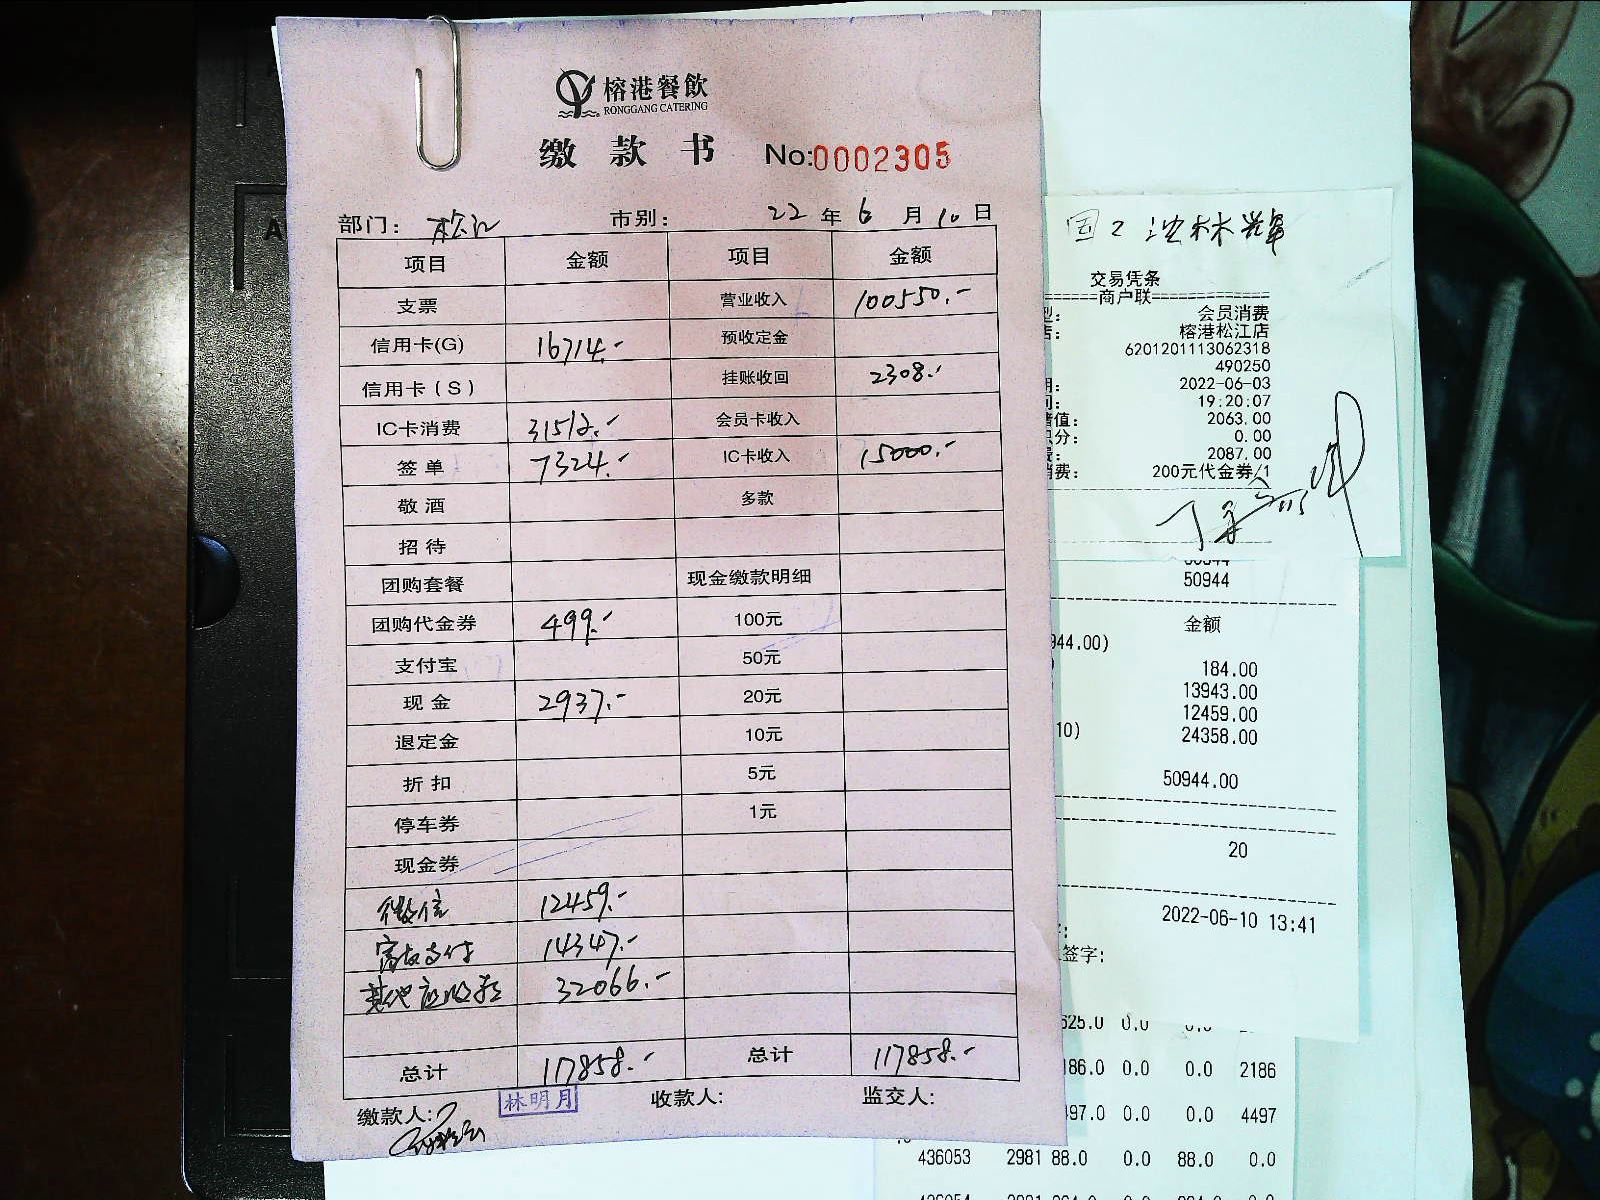 榕港餐飲
RONGGANG CATERING
缴 款 书 No:0002305
部门: 松江 市别: 22 年 6 月 10 日
项目 金额 项目 金额
支票 营业收入 100550.-
信用卡(G) 16714.- 预收定金
信用卡(S) 挂账收回 2308.-
IC卡消费 31512.- 会员卡收入
签单 7324.- IC卡收入 15000.-
敬酒 多款
招待
团购套餐 现金缴款明细
团购代金券 499.- 100元
支付宝 50元
现金 2937.- 20元
退定金 10元
折扣 5元
停车券 1元
现金券
微信 12459.-
富友支付 14347.-
其他应收款 32066.-
总计 117858.- 总计 117858.-
缴款人: 林明月 收款人: 监交人:
交易凭条
======商户联==============
型: 会员消费
店: 榕港松江店
6201201113062318
490250
期: 2022-06-03
间: 19:20:07
储值: 2063.00
积分: 0.00
2087.00
消费: 200元代金券/1
50944
50944
金额
944.00)
184.00
13943.00
12459.00
10) 24358.00
50944.00
20
2022-06-10 13:41
签字:
625.0 0.0 0.0
186.0 0.0 0.0 2186
497.0 0.0 0.0 4497
436053 2981 88.0 0.0 88.0 0.0